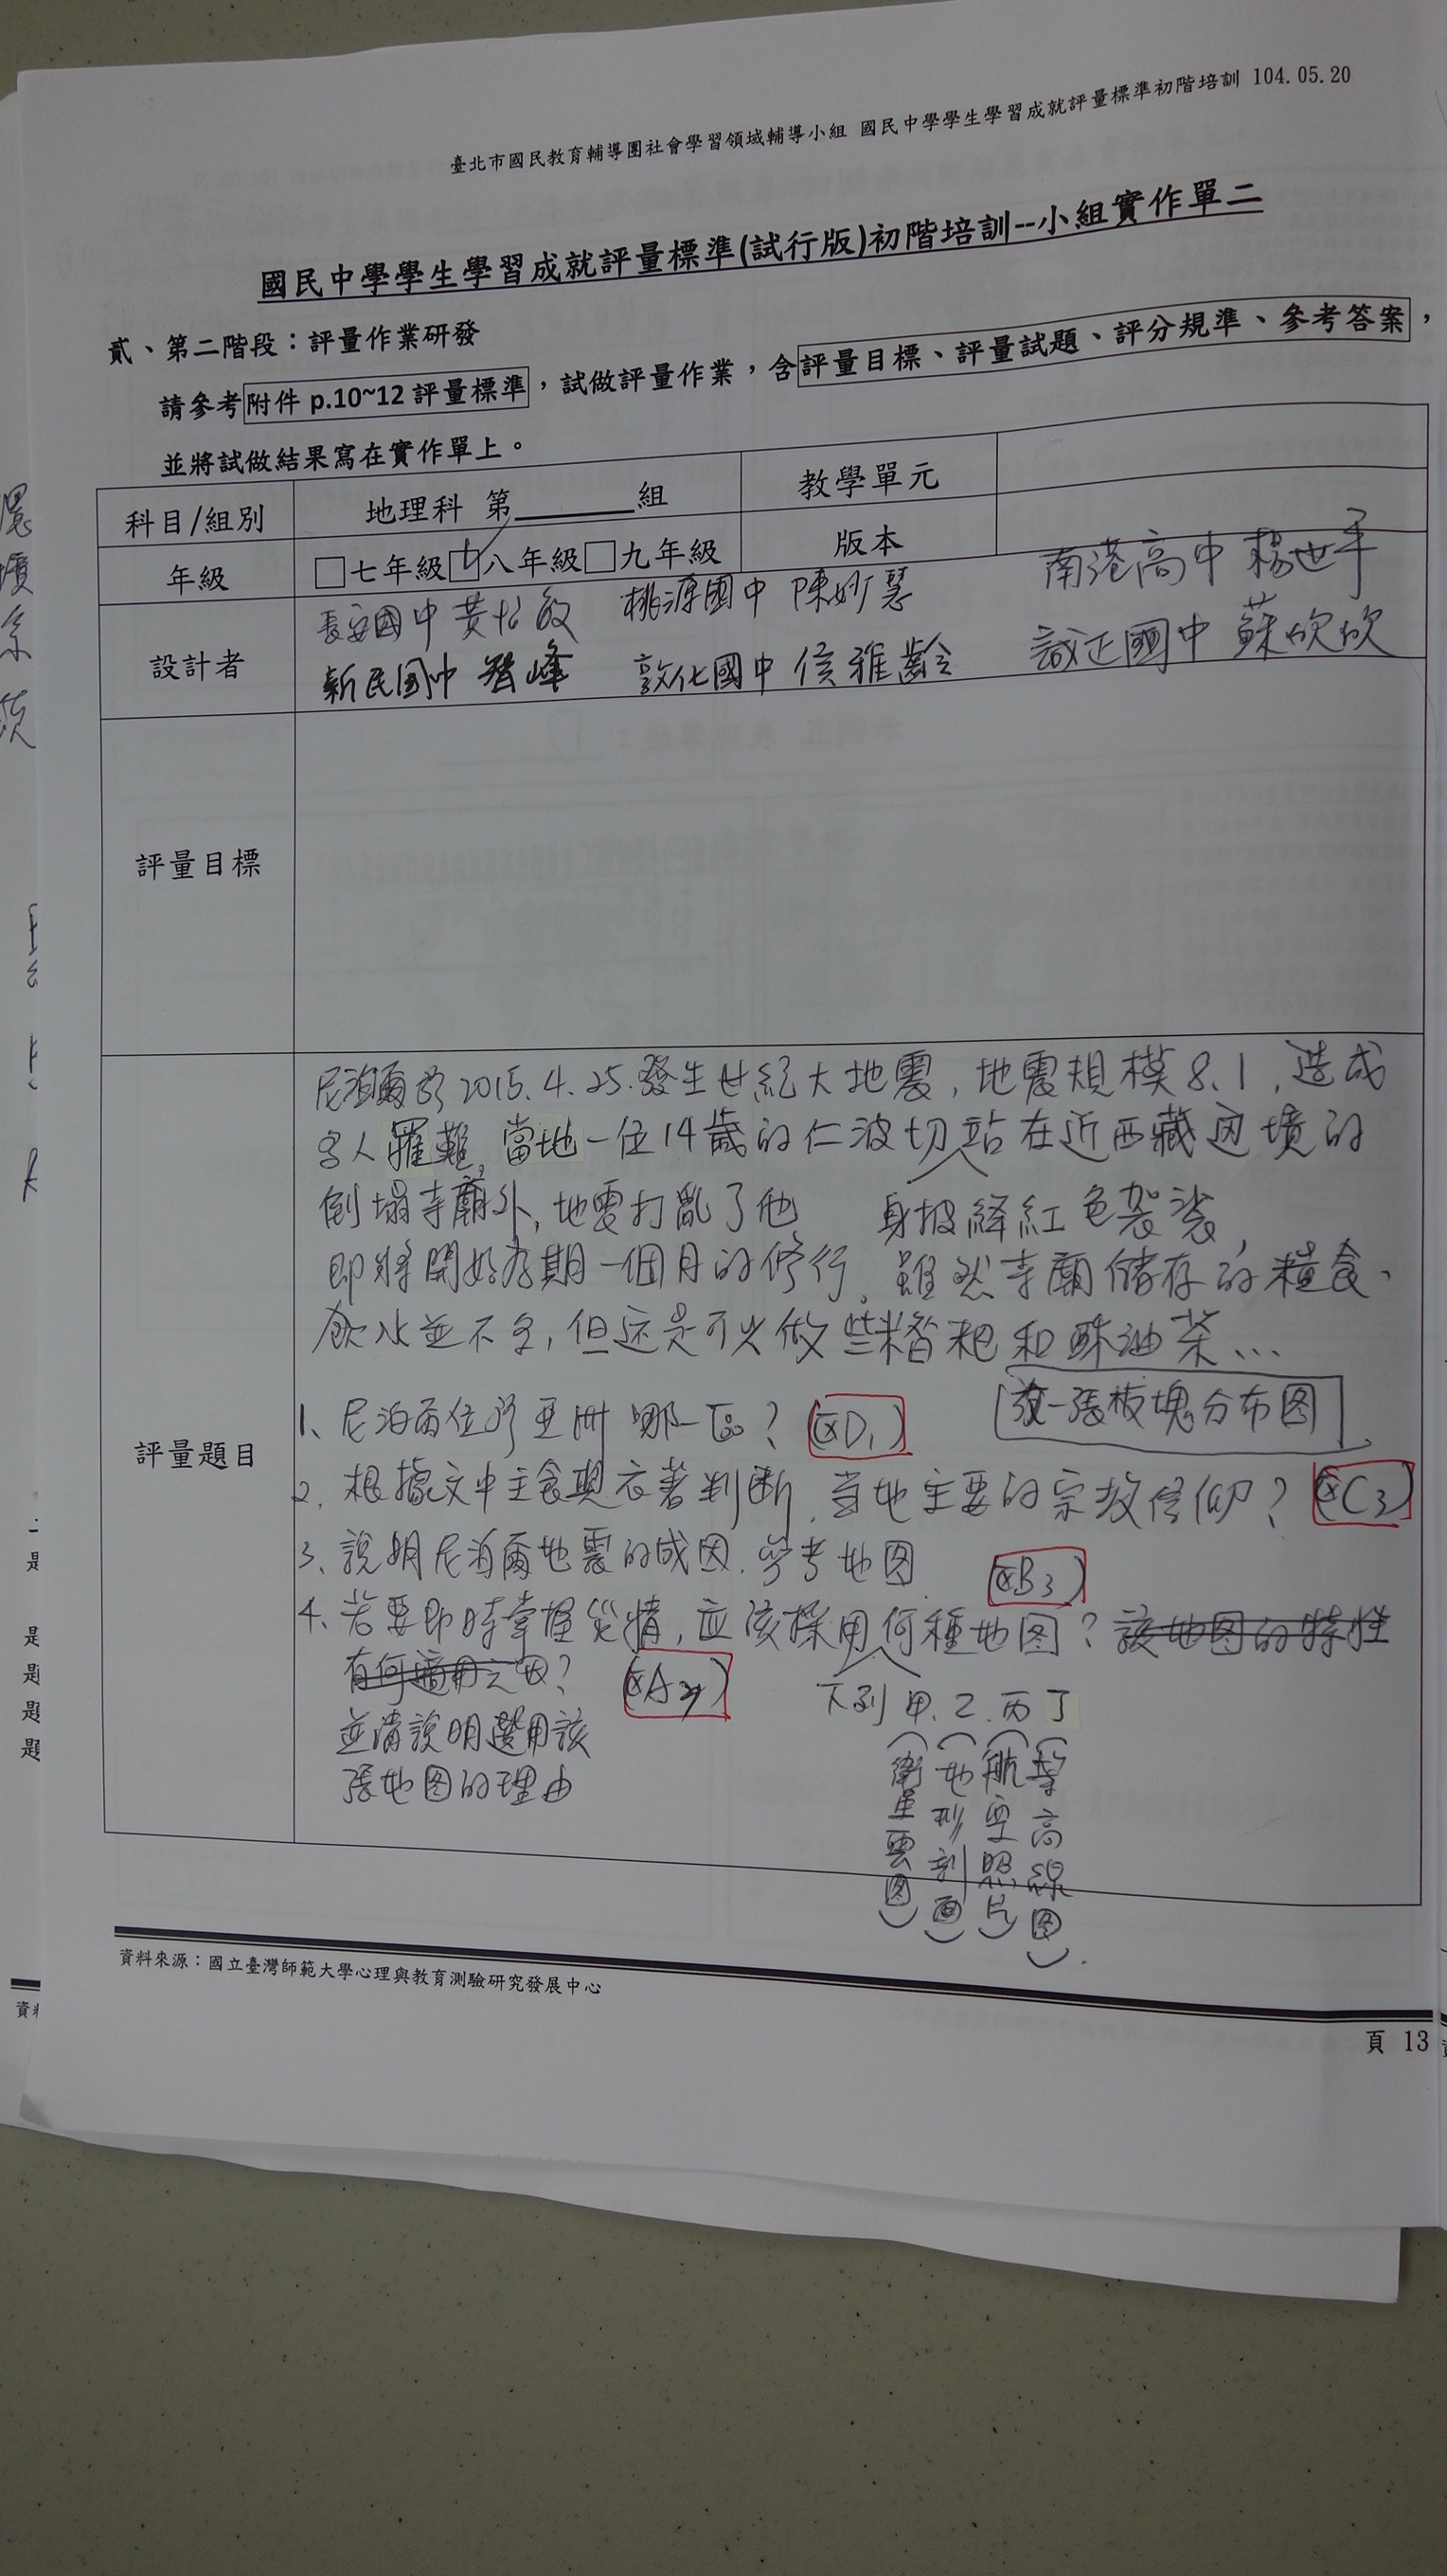 臺北市國民教育輔導團社會學習領域輔導小組 國民中學學生學習成就評量標準初階培訓 104.05.20
國民中學學生學習成就評量標準(試行版)初階培訓--小組實作單二
貳、第二階段：評量作業研發
請參考附件 p.10~12 評量標準，試做評量作業，含評量目標、評量試題、評分規準、參考答案，
並將試做結果寫在實作單上。
科目/組別 地理科 第 組 教學單元
年級 □七年級☑八年級□九年級 版本
設計者
長安國中 黃怡敏 桃源國中 陳妙慧 南港高中 楊世平
新民國中 智峰 敦化國中 侯雅齡 誠正國中 蘇欣欣
評量目標
評量題目
尼泊爾於2015.4.25.發生世紀大地震，地震規模8.1，造成
多人罹難，當地一位14歲的仁波切站在近西藏邊境的
倒塌寺廟外，地震打亂了他 身披絳紅色袈裟，
即將開始為期一個月的修行。雖然寺廟儲存的糧食、
飲水並不多，但還是可以做些糌粑和酥油茶…
放一張板塊分布图
1、尼泊爾位於亞洲哪一區？(※D1)
2. 根據文中主食與衣著判斷，當地主要的宗教信仰？(※C3)
3、說明尼泊爾地震的成因.參考地图. (※B3)
4、若要即時掌握災情，应该採用何種地图？該地图的特性
有何適用之因？ (※A )
下列甲、乙、丙、丁
並請說明選用該
張地图的理由
(衛星雲图)
(地形剖面)
(航空照片)
(等高線图).
資料來源：國立臺灣師範大學心理與教育測驗研究發展中心
頁 13